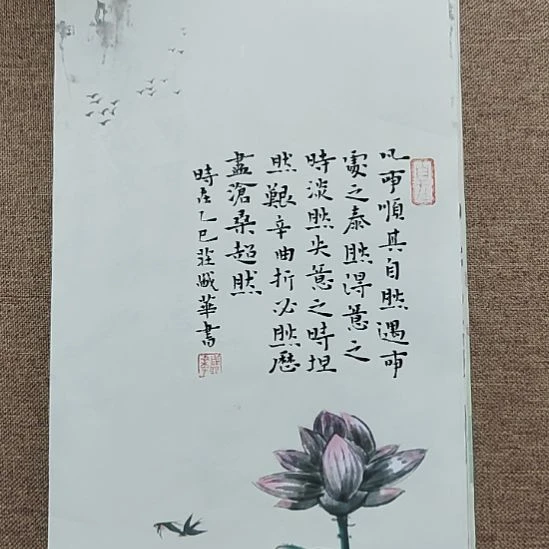 凡事順其自然遇事
處之泰然得意之
時淡然失意之時坦
然艱辛曲折必然歷
盡滄桑超然
時在乙巳莊戚華書